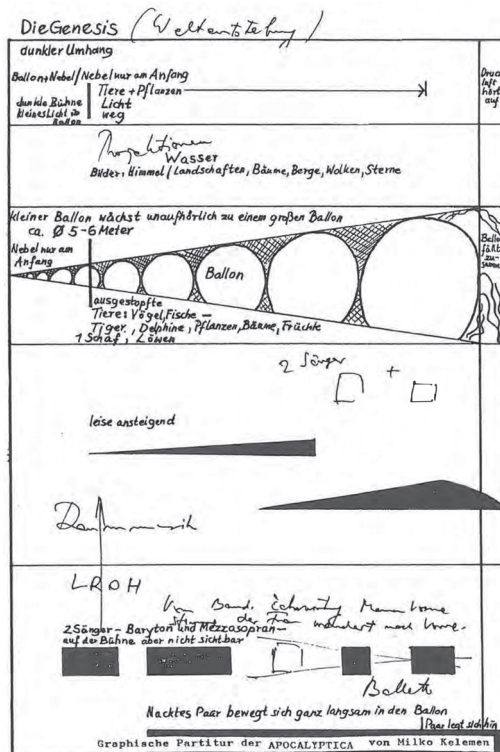 Die Genesis (Weltentstehung)
dunkler Umhang
Ballon+Nebel/Nebel nur am Anfang
Tiere + Pflanzen
dunkle Bühne
kleines Licht in
Ballon
Licht
weg
Druck
luft
hört
auf
Projektionen
Wasser
Bilder: Himmel/Landschaften, Bäume, Berge, Wolken, Sterne
kleiner Ballon wächst unaufhörlich zu einem großen Ballon
ca. Ø 5-6 Meter
Nebel nur am
Anfang
Ballon
Ballon
fällt
zu-
samme
ausgestopfte
Tiere: Vögel, Fische —
Tiger, Delphine, Pflanzen, Bäume, Früchte
1 Schaf, Löwen
2 Sänger
+
leise ansteigend
L R O H
Vom Band.
Mann vorne
der Frau wandert nach vorne.
2 Sänger - Baryton und Mezzosopran -
auf der Bühne aber nicht sichtbar
Ballett
Nacktes Paar bewegt sich ganz langsam in den Ballon
Paar legt sich hin
Graphische Partitur der APOCALYPTICA von Milko Kelemen